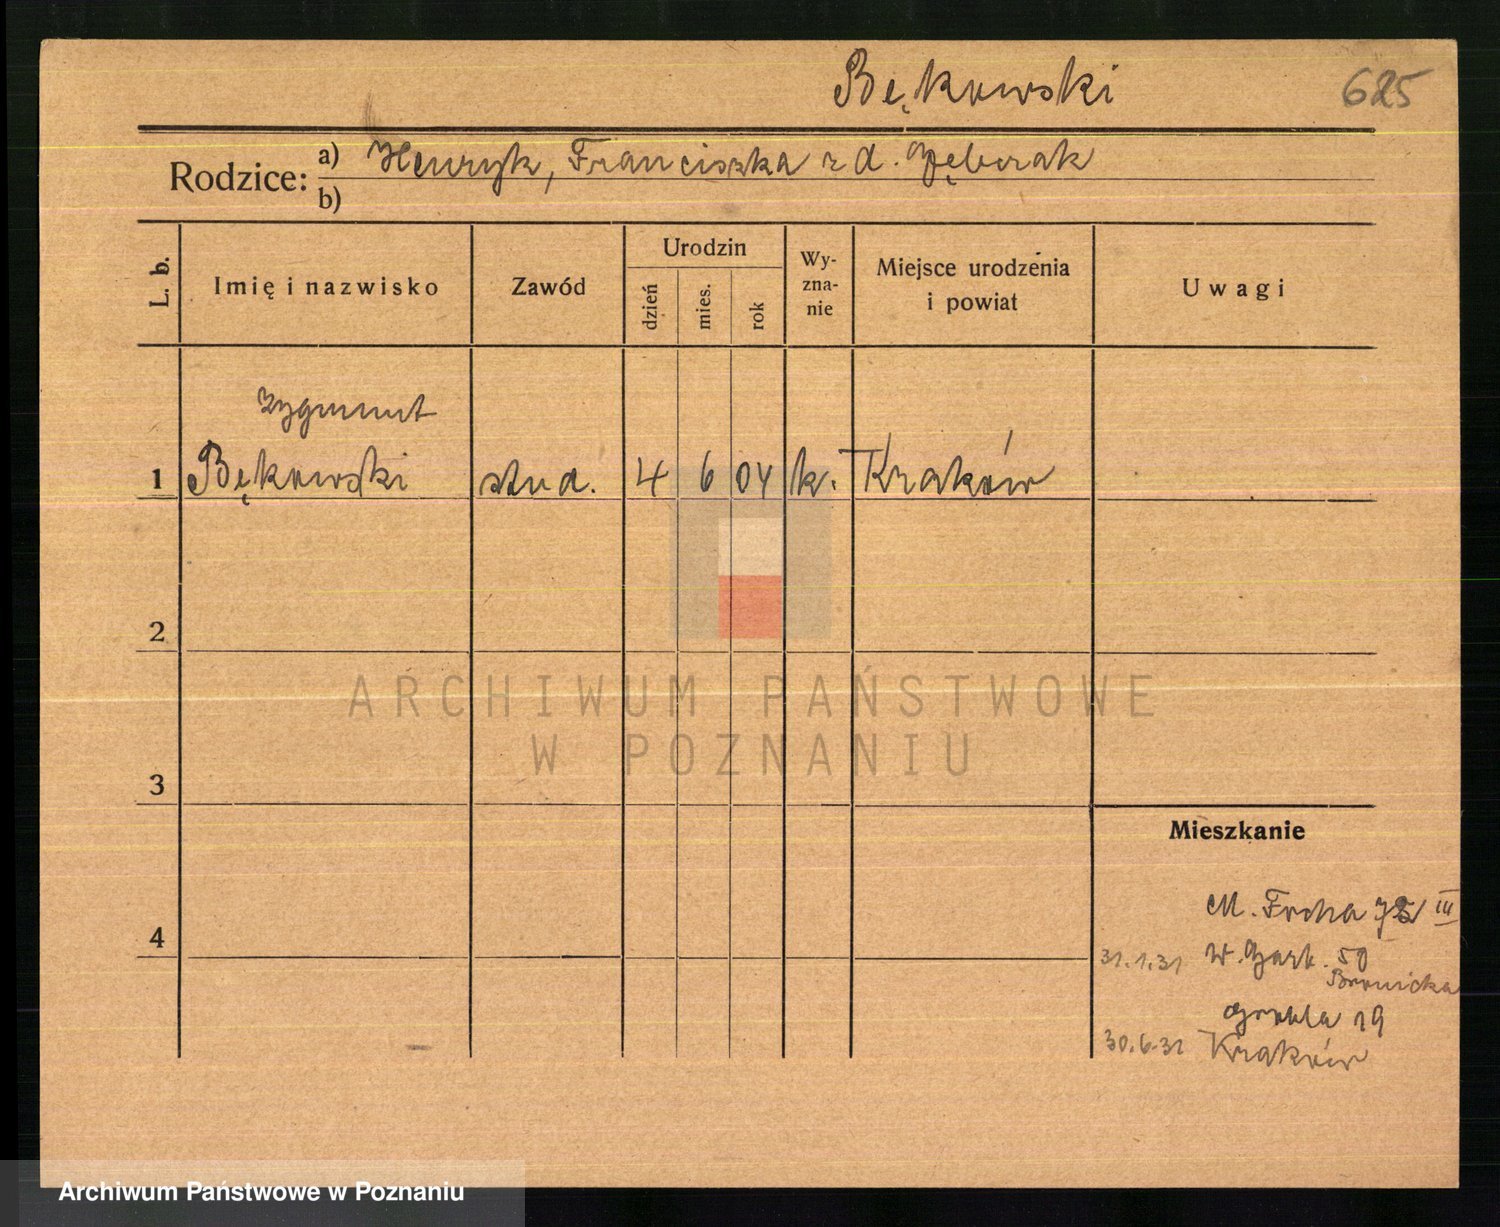 Bękowski 625
Rodzice: a) Henryk, Franciszka z d.
b)
L. b.
Imię i nazwisko
Zawód
Urodzin
dzień
mies.
rok
Wy-
zna-
nie
Miejsce urodzenia
i powiat
Uwagi
Zygmunt
1 Bękowski stud. 4 6 04 k. Kraków
2
3
4
Mieszkanie
M. Focha III
31.1.31 W. Garb. 50
Bronicka
19
30.6.31 Kraków
ARCHIWUM PAŃSTWOWE
W POZNANIU
Archiwum Państwowe w Poznaniu